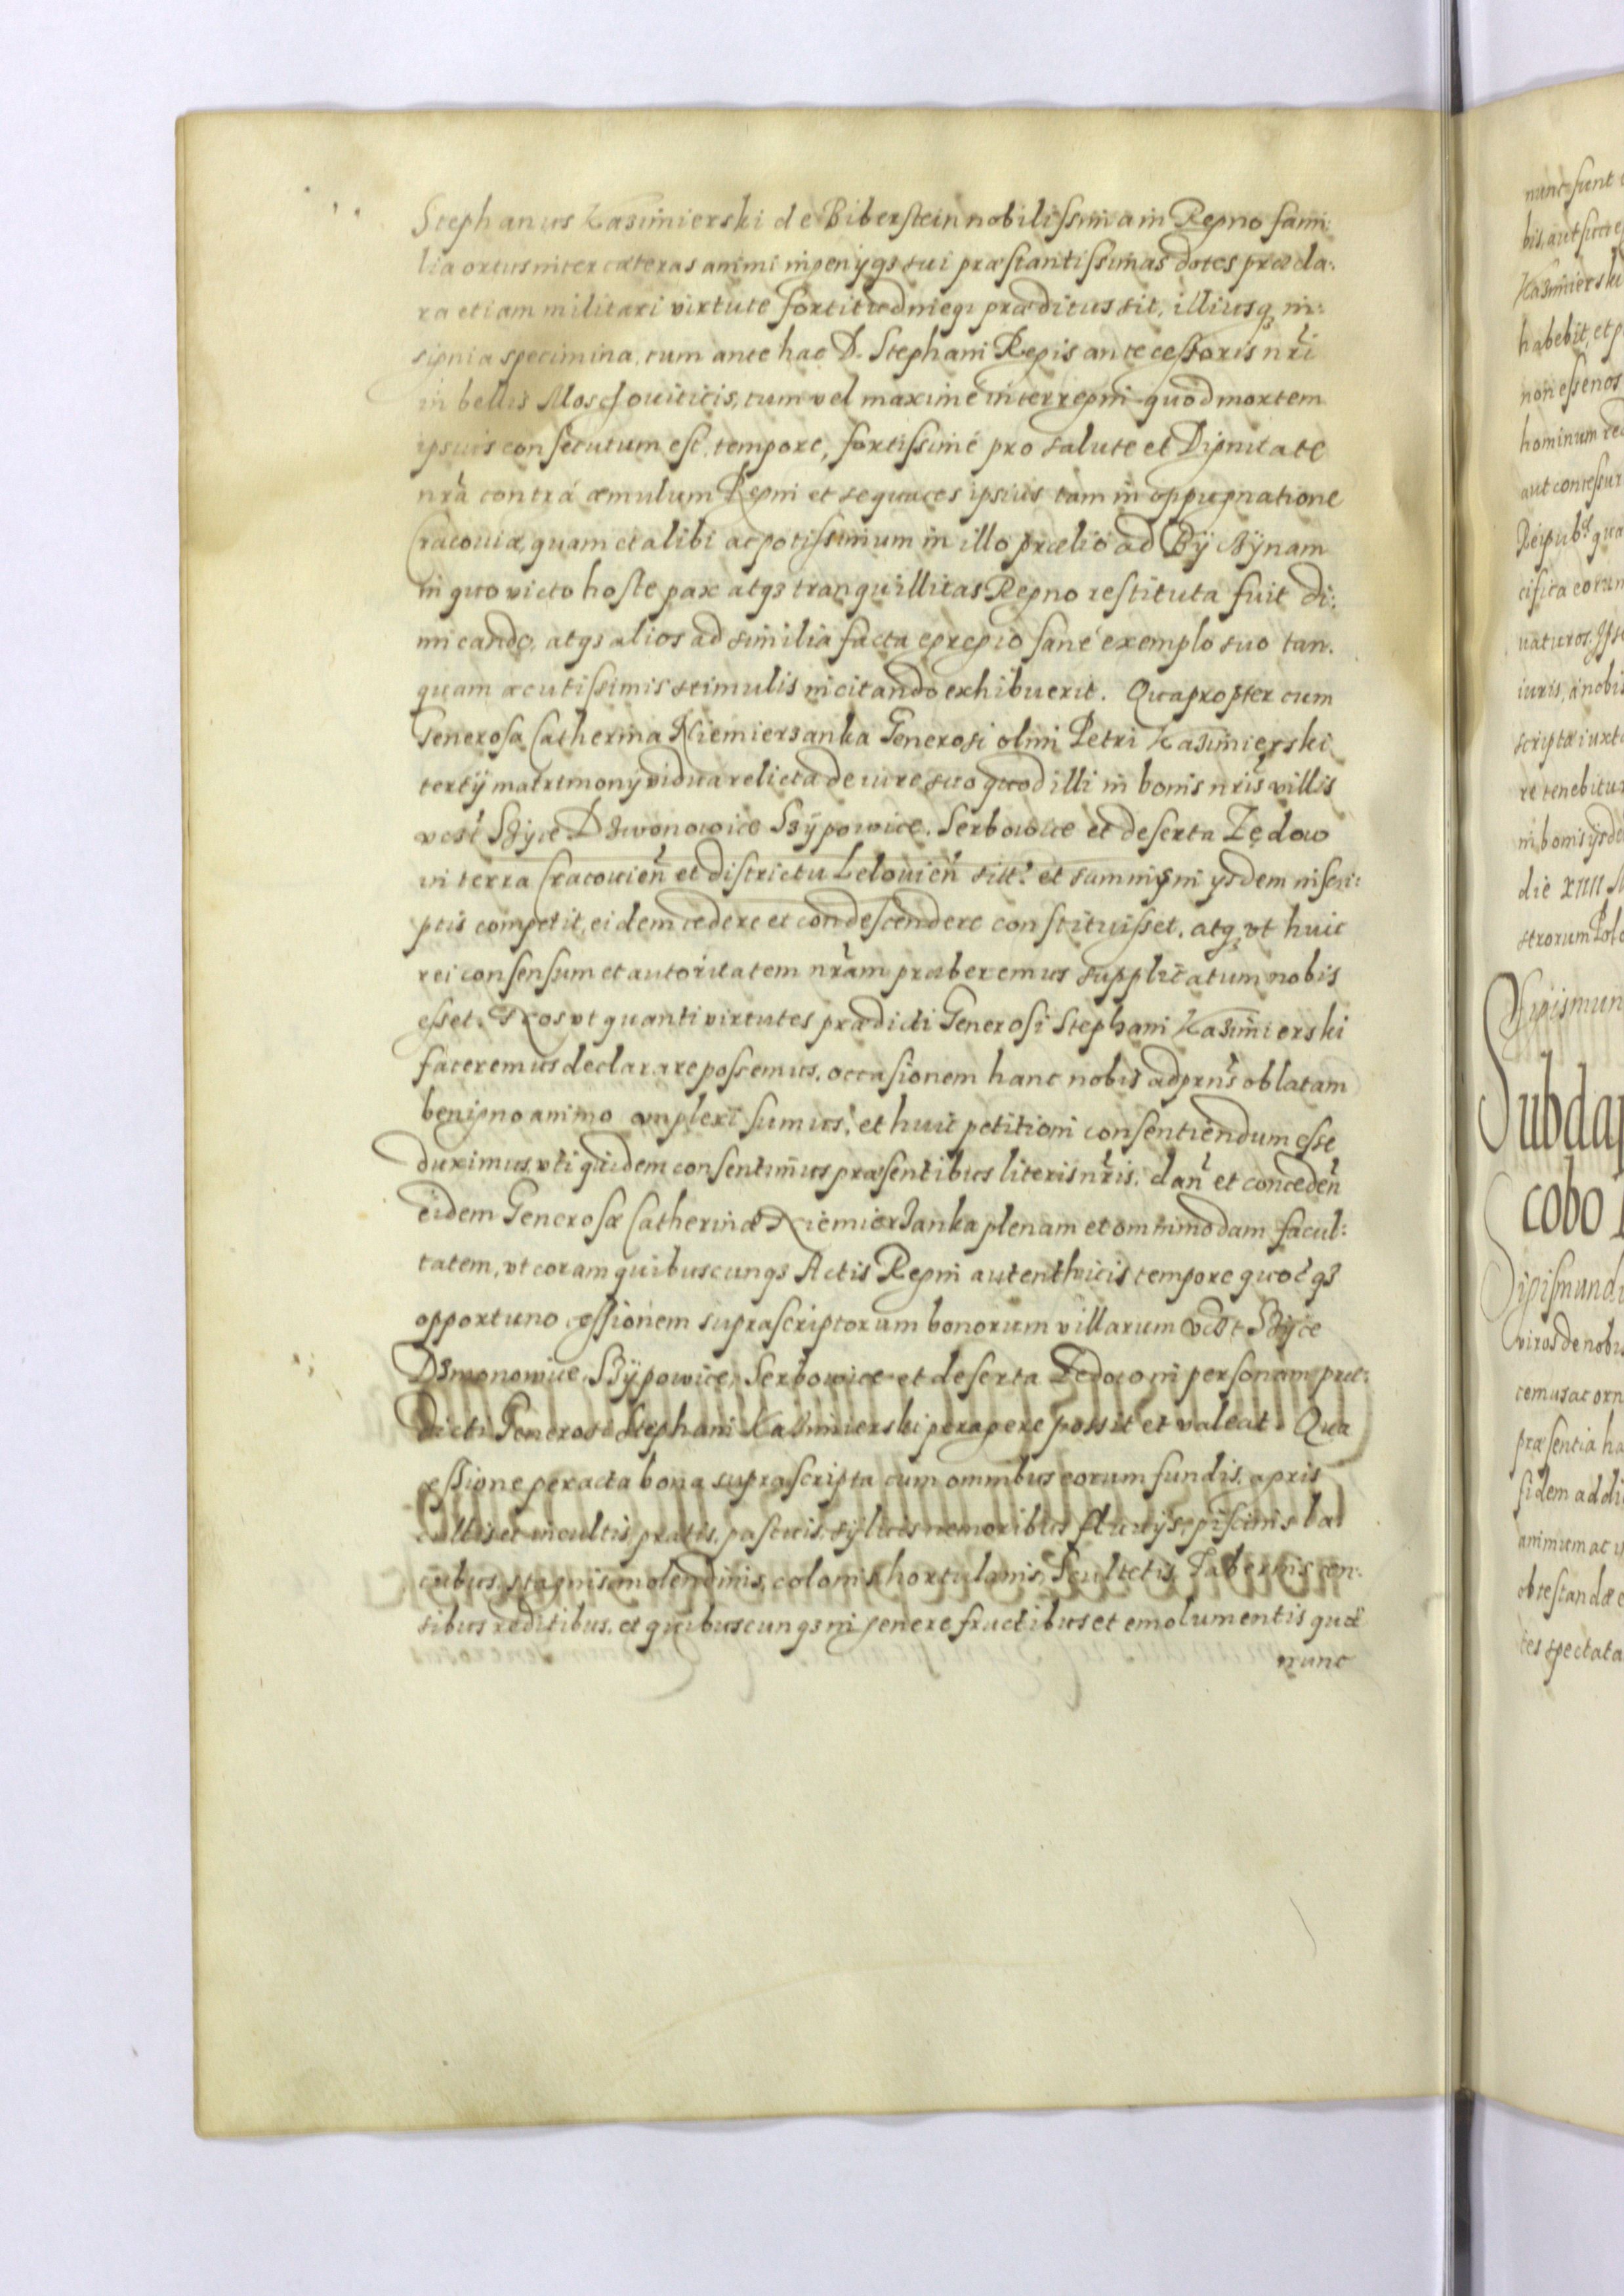 Stephanus Kazimierski de Biberstein nobilissima in Regno fami:
lia ortus inter cæteras animi ingenijqз sui præstantissimas dotes præcla:
ra etiam militari virtute fortitudineqз præditus sit, illiusqз in:
signia specimina, tum ante hac D. Stephani Regis antecessoris nr̃i
in bellis Moschouiticis, tum vel maximè interregni quod mortem
ipsius consecutum est, tempore, fortissimè pro salute et Dignitate
nr̃a contrá æmulum Regni et sequaces ipsius tam in oppugnatione
Cracouiæ, quam et alibi ac potissimum in illo prælio ad Byczynam
in quo victo hoste pax atqз tranquillitas Regno restituta fuit di:
micando, atqз alios ad similia facta egregio sanè exemplo suo tan.
quam acutissimis stimulis incitando exhibuerit. Quapropter cum
Generosa Catherina Niemierzanka Generosi olim Petri Kazimierski
tertij matrimony vidua relicta de iure suo quod illi in bonis nr̃is villis
vcst Szyce Dzwonowice Szÿpowice, Serbowice et deserta Zędow
in terra Cracouien̄ et districtu Lelouien̄ sitt: et summis in ysdem inscri:
ptis competit, eidem cedere et condescendere constituisset, atqз vt huic
rei consensum et autoritatem nr̃am præberemus supplicatum nobis
esset. Nos vt quanti virtutes prædicti Generosi Stephani Kazimierski
faceremus declarare possemus, occasionem hanc nobis ad prñs oblatam
benigno animo amplexi sumus, et huic petitioni consentiendum esse
duximus, vti quidem consentimus præsentibus literis nr̃is, dan̄ et conceden̄
eidem Generosæ Catherinæ Niemierzanka plenam et omnimodam facul:
tatem, vt coram quibuscunqз Actis Regni autenthicis tempore quoc̨qз
opportuno cessionem suprascriptorum bonorum villarum vcst Szyce
Dzwonowice, Szÿpowice, Serbowice et deserta Zedow in personam præ:
dicti Generosi Stephani Kazimierski peragere possit et valeat. Qua
cessione peracta bona suprascripta cum omnibus eorum fundis, agris
cultis et incultis, pratis, pascuis, syluis nemoribus fluuijs, piscinis la
cubus, stagnis molendinis, colonis hortulanis, Scultetis, Tabernis cen:
sibus reditibus, et quibuscunqз in genere fructibus et emolumentis quæ
nunc
nunc sunt
Kazimierski
habebit, et
non esse nos
hominum
aut
Reipub:
iuris, à nobis
scripta iuxta
re tenebitur
in bonis ysde
die XIIII
strorum Polo
Sigismun
Subdap
cobo
Sigismund
viros de nobis
præsentia ha
fidem ad
animum ac
tes spectata